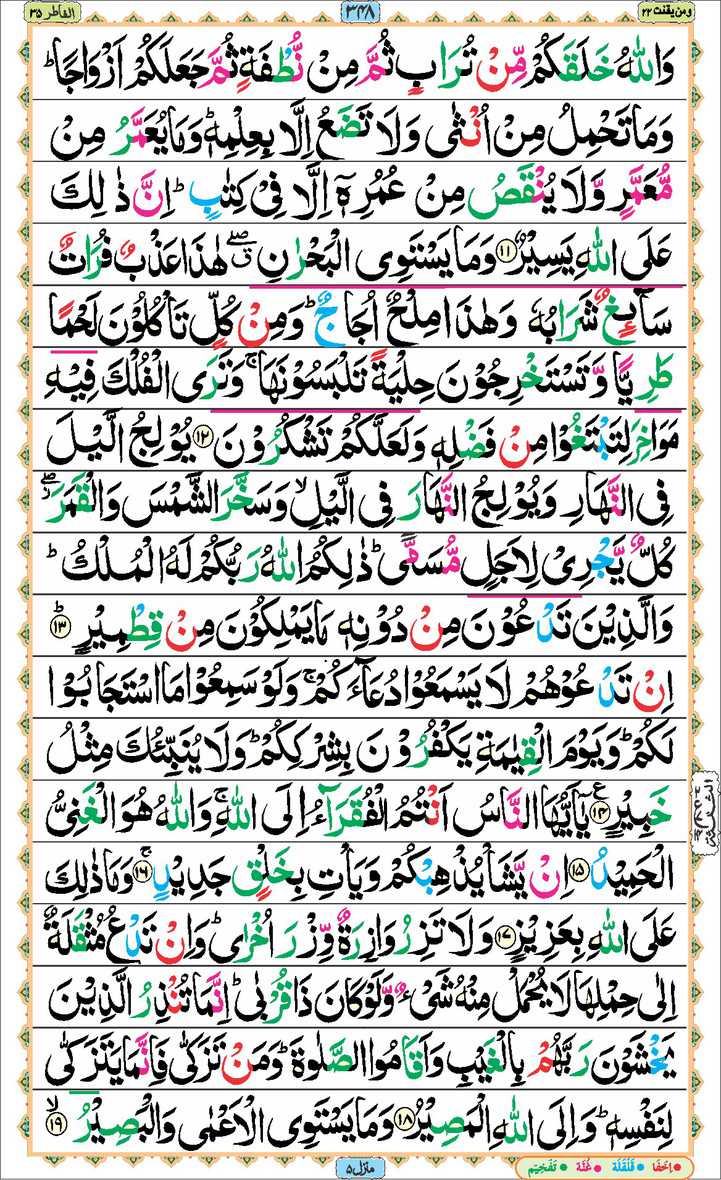 ومن یقنت ۲۲
۳۴۸
الفاطر ۳۵
وَاللّٰهُ خَلَقَكُمْ مِّنْ تُرَابٍ ثُمَّ مِنْ نُّطْفَةٍ ثُمَّ جَعَلَكُمْ اَزْوَاجًا ؕ
وَمَا تَحْمِلُ مِنْ اُنْثٰى وَلَا تَضَعُ اِلَّا بِعِلْمِهٖ ؕ وَمَا يُعَمَّرُ مِنْ
مُّعَمَّرٍ وَّلَا يُنْقَصُ مِنْ عُمُرِهٖۤ اِلَّا فِىْ كِتٰبٍ ؕ اِنَّ ذٰلِكَ
عَلَى اللّٰهِ يَسِيْرٌ ۱۱ وَمَا يَسْتَوِى الْبَحْرٰنِ ۖ ق هٰذَا عَذْبٌ فُرَاتٌ
سَآئِغٌ شَرَابُهٗ وَهٰذَا مِلْحٌ اُجَاجٌ ؕ وَمِنْ كُلٍّ تَاْكُلُوْنَ لَحْمًا
طَرِيًّا وَّتَسْتَخْرِجُوْنَ حِلْيَةً تَلْبَسُوْنَهَا ۚ وَتَرَى الْفُلْكَ فِيْهِ
مَوَاخِرَ لِتَبْتَغُوْا مِنْ فَضْلِهٖ وَلَعَلَّكُمْ تَشْكُرُوْنَ ۱۲ يُوْلِجُ الَّيْلَ
فِى النَّهَارِ وَيُوْلِجُ النَّهَارَ فِى الَّيْلِ ۙ وَسَخَّرَ الشَّمْسَ وَالْقَمَرَ ۖ
كُلٌّ يَّجْرِىْ لِاَجَلٍ مُّسَمًّى ؕ ذٰلِكُمُ اللّٰهُ رَبُّكُمْ لَهُ الْمُلْكُ ؕ
وَالَّذِيْنَ تَدْعُوْنَ مِنْ دُوْنِهٖ مَا يَمْلِكُوْنَ مِنْ قِطْمِيْرٍ ؕ ۱۳
اِنْ تَدْعُوْهُمْ لَا يَسْمَعُوْا دُعَآءَكُمْ ۚ وَلَوْ سَمِعُوْا مَا اسْتَجَابُوْا
لَكُمْ ؕ وَيَوْمَ الْقِيٰمَةِ يَكْفُرُوْنَ بِشِرْكِكُمْ ؕ وَلَا يُنَبِّئُكَ مِثْلُ
خَبِيْرٍ ع ۱۴ يٰۤاَيُّهَا النَّاسُ اَنْتُمُ الْفُقَرَآءُ اِلَى اللّٰهِ ۚ وَاللّٰهُ هُوَ الْغَنِىُّ
الْحَمِيْدُ ۱۵ اِنْ يَّشَاْ يُذْهِبْكُمْ وَيَاْتِ بِخَلْقٍ جَدِيْدٍ ۚ ۱۶ وَمَا ذٰلِكَ
عَلَى اللّٰهِ بِعَزِيْزٍ ۱۷ وَلَا تَزِرُ وَازِرَةٌ وِّزْرَ اُخْرٰى ؕ وَاِنْ تَدْعُ مُثْقَلَةٌ
اِلٰى حِمْلِهَا لَا يُحْمَلْ مِنْهُ شَىْءٌ وَّلَوْ كَانَ ذَا قُرْبٰى ؕ اِنَّمَا تُنْذِرُ الَّذِيْنَ
يَخْشَوْنَ رَبَّهُمْ بِالْغَيْبِ وَاَقَامُوا الصَّلٰوةَ ؕ وَمَنْ تَزَكّٰى فَاِنَّمَا يَتَزَكّٰى
لِنَفْسِهٖ ؕ وَاِلَى اللّٰهِ الْمَصِيْرُ ۱۸ وَمَا يَسْتَوِى الْاَعْمٰى وَالْبَصِيْرُ ۙ ۱۹
منزل ۵
اِخْفَا قَلْقَلَة غُنَّه تَفْخِيْم